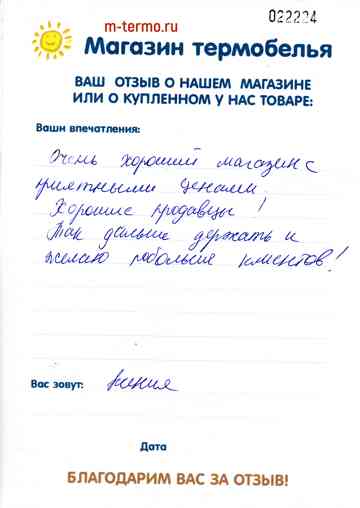 022224
m-termo.ru
Магазин термобелья
ВАШ ОТЗЫВ О НАШЕМ МАГАЗИНЕ
ИЛИ О КУПЛЕННОМ У НАС ТОВАРЕ:
Ваши впечатления:
Очень хороший магазин с
приятными ценами.
Хорошие продавцы!
Так дальше держать и
желаю побольше клиентов!
Вас зовут: Ксения
Дата
БЛАГОДАРИМ ВАС ЗА ОТЗЫВ!